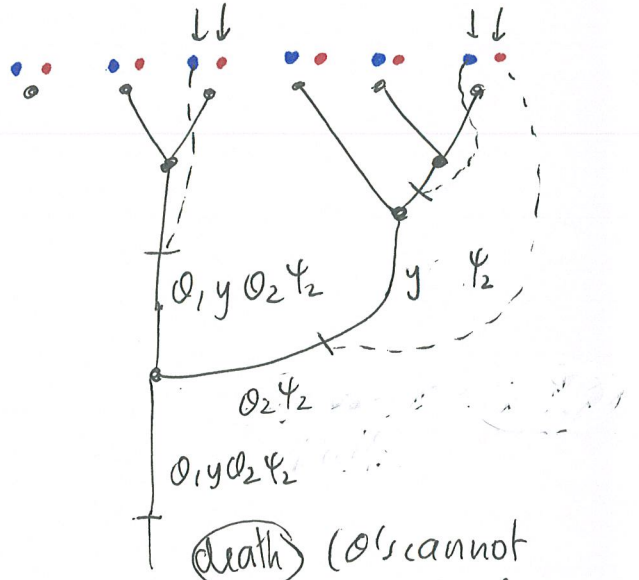 θ₁ y θ₂ Ψ₂
y Ψ₂
θ₂ Ψ₂
θ₁ y θ₂ Ψ₂
death (θ's cannot